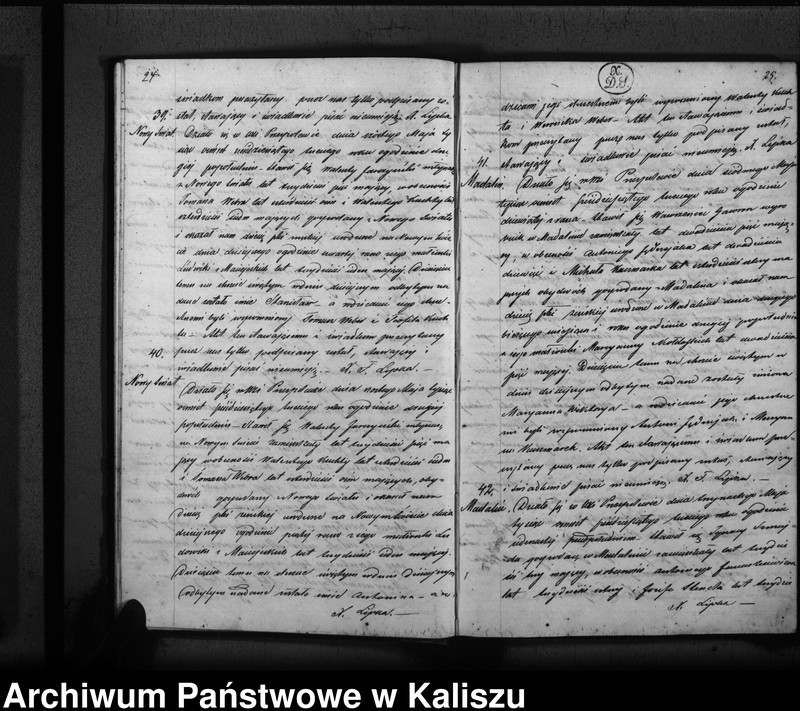 24.
świadkom przeczytany przez nas tylko podpisany zo-
stał, stawający i świadkowie pisać nieumieją. A. Lipka
39.
Nowy Świat
Działo się w wsi dnia szóstego Maja ty-
siąc ośmset pięćdziesiątego trzeciego roku o godzinie dru-
giej popołudniu. Stawił się Walenty
z Nowego Świata lat trzydzieści pięć mający, w obecności
Tomasza Webra lat czterdzieści ośm i Walentego
czterdzieści siedm mających gospodarzy z Nowego Świata
i okazał nam dziecię płci męskiej urodzone na Nowym Świe-
cie dnia dzisiejszego o godzinie czwartej rano z jego małżonki
Ludwiki z lat trzydzieści jeden mającej. Dziecięciu
temu na chrzcie świętym w dniu dzisiejszym odbytym na-
dane zostało imie Stanisław a rodzicami jego chrze-
stnemi byli wspomniony Tomasz Weber i
Akt ten stawającemu i świadkom przeczytany
przez nas tylko podpisany został, stawający i
świadkowie pisać nieumieją. Lipka.
40.
Nowy Świat
Działo się w wsi dnia szóstego Maja tysiąc
ośmset pięćdziesiątego trzeciego roku o godzinie drugiej
popołudniu. Stawił się Walenty
na Nowym Świecie zamieszkały lat trzydzieści pięć ma-
jący w obecności Walentego lat czterdzieści siedm
i Tomasza Webra lat czterdzieści ośm mających, oby-
dwóch gospodarzy z Nowego Świata i okazał nam
dziecię płci żeńskiej urodzone na Nowym Świecie dnia
dzisiejszego o godzinie piątej rano z jego małżonki Lu-
dowiki z lat trzydzieści jeden mającej.
Dziecięciu temu na chrzcie świętym w dniu dzisiejszym
odbytym nadane zostało imie Antonina a ro-
A. Lipka.
X.
D.S.
25.
dzicami jego chrzestnemi byli wspomniony Walenty
i Weronika Weber. Akt ten stawającemu i świad-
kom przeczytany przez nas tylko podpisany został,
stawający i świadkowie pisać nieumieją. A. Lipka
41.
Madalin.
Działo się w wsi dnia siódmego Maja
tysiąc ośmset pięćdziesiątego trzeciego roku o godzinie
dziewiątej z rana. Stawił się Wawrzeniec Gawron wyro-
bnik w Madalinie zamieszkały lat dwadzieścia pięć mają-
cy, w obecności Antoniego lat dwadzieścia
dziewięć i Michała Kaczmarka lat czterdzieści cztery ma-
jących obydwóch gospodarzy z Madalina i okazał nam
dziecię płci żeńskiej urodzone w Madalinie dnia drugiego
bieżącego miesiąca i roku o godzinie drugiej popołudniu
z jego małżonki Maryanny lat dwadzieścia
pięć mającej. Dziecięciu temu na chrzcie świętym w
dniu dzisiejszym odbytym nadane zostały imiona
Maryanna Wiktorya a rodzicami jego chrzestne-
mi byli wspomniony Antoni i Maryan-
na Kaczmarek. Akt ten stawającemu i świadkom prze-
czytany przez nas tylko podpisany został, stawający
i świadkowie pisać nieumieją. Lipka.
42.
Madalin.
Działo się w wsi dnia trzynastego Maja
tysiąc ośmset pięćdziesiątego trzeciego roku o godzinie
popołudniu. Stawił się Ignacy
gospodarz w Madalinie zamieszkały lat trzydzie-
ści trzy mający, w obecności Antoniego
lat trzydzieści cztery i Józefa lat trzydzie-
A. Lipka
Archiwum Państwowe w Kaliszu